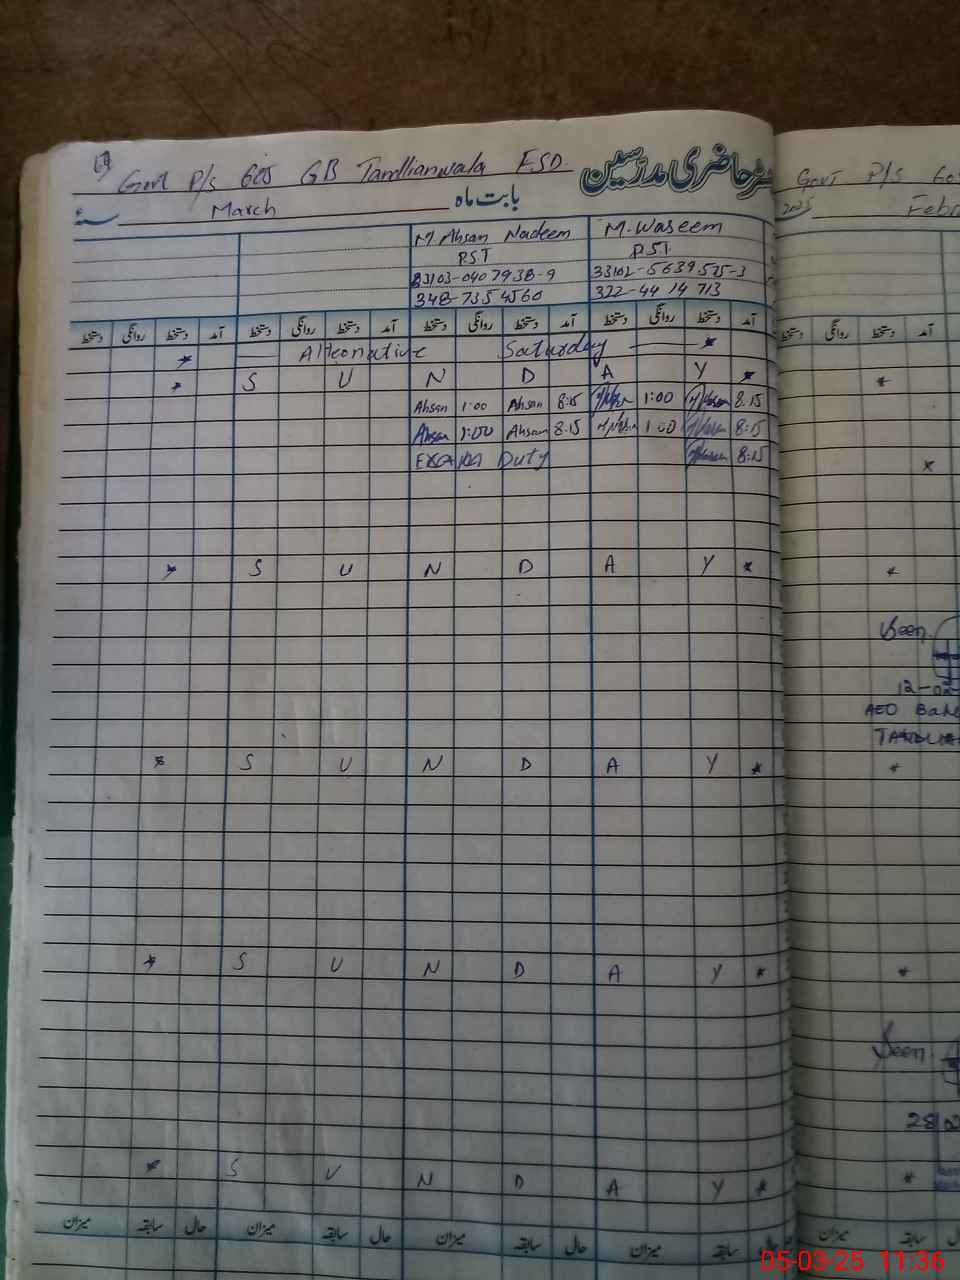 Govt P/s 605 GB Tandlianwala F.S.D. رجسٹر حاضری مدرسین
March بابت ماہ سنہ
M. Ahsan Nadeem M. Waseem
P.S.T P.S.T
33103-0407938-9 33102-5639525-3
348-7354560 322-44 14 713
دستخط روانگی دستخط آمد دستخط روانگی دستخط آمد دستخط روانگی دستخط آمد دستخط روانگی دستخط آمد
* Alternative Saturday *
* S U N D A Y *
Ahsan 1:00 Ahsan 8:15 1:00 8:15
Ahsan 1:00 Ahsan 8:15 1:00 8:15
Duty 8:15
* S U N D A Y *
* S U N D A Y *
* S U N D A Y *
* S U N D A Y *
میزان سابقہ حال میزان سابقہ حال میزان سابقہ حال میزان سابقہ حال
Govt P/s
2025
دستخط روانگی دستخط آمد
*
*
*
Seen
AEO
*
*
Seen
*
میزان سابقہ حال
05-03-25 11:36